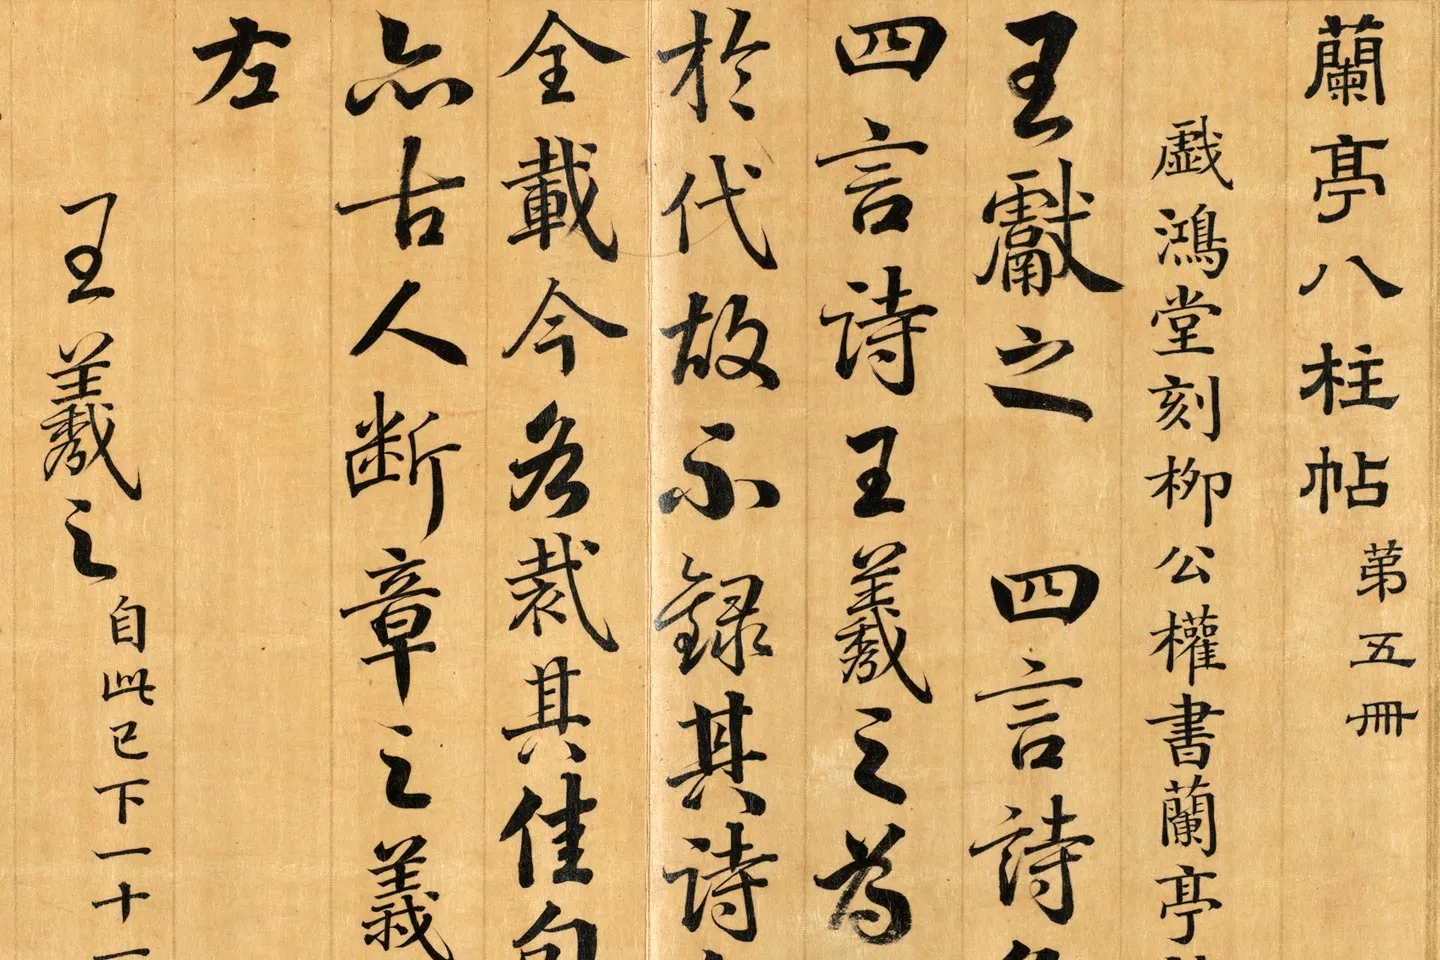 蘭亭八柱帖 第五冊
戲鴻堂刻柳公權書蘭亭
王獻之 四言詩
四言詩王羲之為
於代故不錄其詩
全載今各裁其佳句
亦古人斷章之義
左
王羲之 自此已下一十一